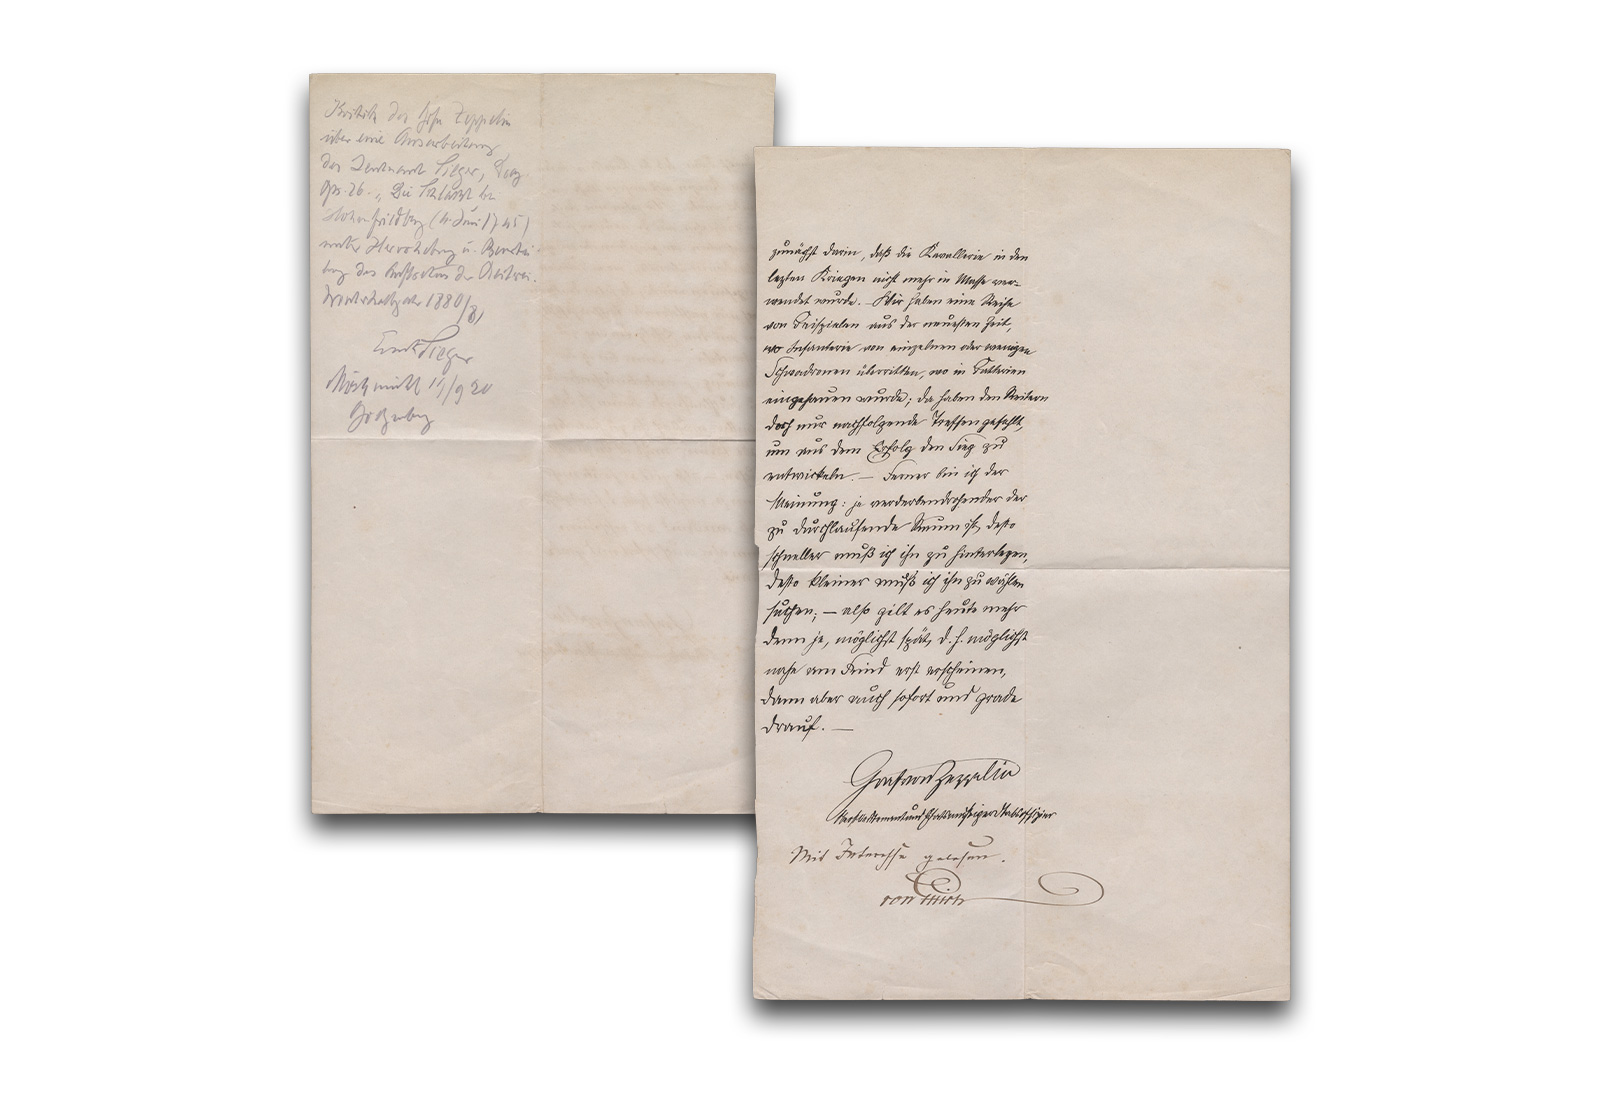 Kritik des Grfn Zeppelin
über eine Ausarbeitung
des Lieutenant Sieger, Drag
Rgt. 26. „Die Schlacht bei
Hohenfriedberg (4. Juni 1745)
unter Hervorhebung u. Beurtei-
lung des Auftretens der Reiterei.
Winterhalbjahr 1880/81
Ernst Sieger
19/9 20
zunächst darin, daß die Kavallerie in den
letzten Kriegen nicht mehr in Masse ver-
wendet wurde. – Wir haben eine Reihe
von Beispielen aus der neuesten Zeit,
wo Infanterie von einzelnen oder wenigen
Schwadronen überritten, wo in Batterien
eingehauen wurde; da haben den Reitern
doch nur nachfolgende Treffen gefehlt,
um aus dem Erfolg den Sieg zu
entwickeln. – Ferner bin ich der
Meinung: je verderbendrohender der
zu durchlaufende Raum ist, desto
schneller muß ich ihn zu hinterlegen,
desto kleiner muß ich ihn zu wählen
suchen; – also gilt es heute mehr
denn je, möglichst spät, d. h. möglichst
nahe am Feind erst erscheinen,
dann aber auch sofort und grade
drauf. –
Graf von Zeppelin
Mit Interesse gelesen.
von